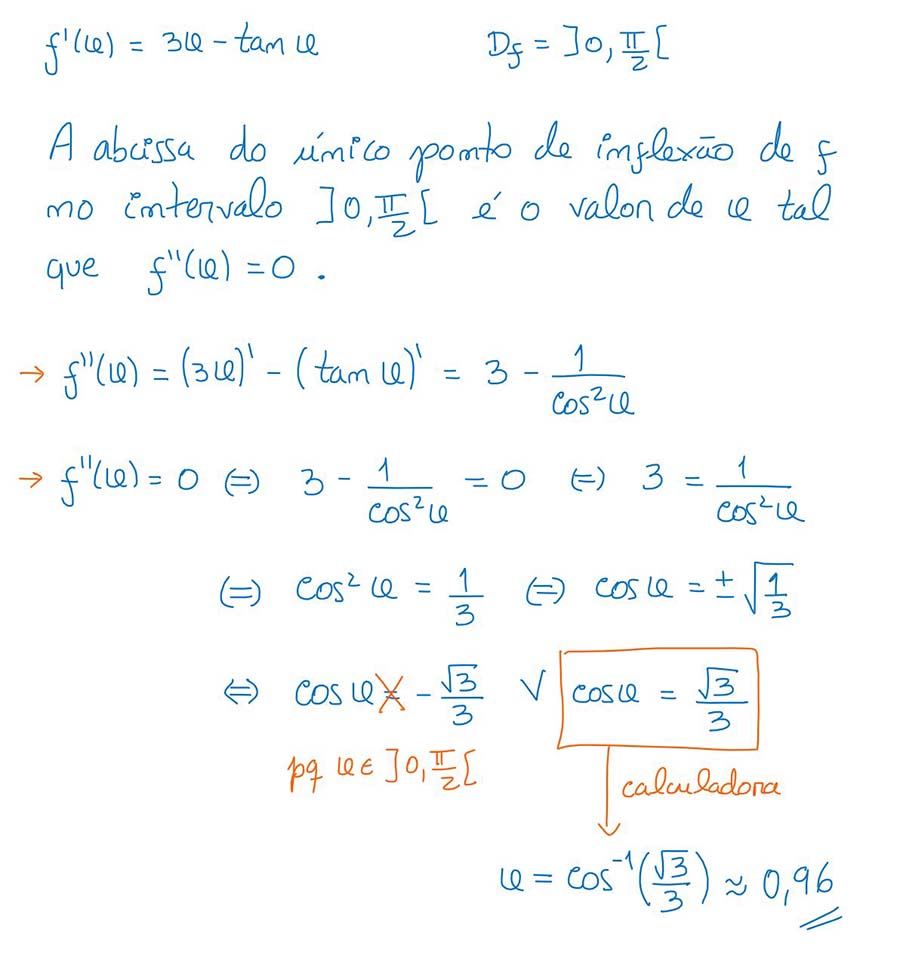 f'(x) = 3x - tan x    Df = ]0, π/2[
A abcissa do único ponto de inflexão de f
no intervalo ]0, π/2[ é o valor de x tal
que f''(x) = 0 .
→ f''(x) = (3x)' - (tan x)' = 3 - 1/cos²x
→ f''(x) = 0 (=) 3 - 1/cos²x = 0 (=) 3 = 1/cos²x
(=) cos²x = 1/3 (=) cos x = ±√(1/3)
⇔ cos x = -√3/3 ∨ cos x = √3/3
pq x ∈ ]0, π/2[
calculadora
x = cos⁻¹(√3/3) ≈ 0,96